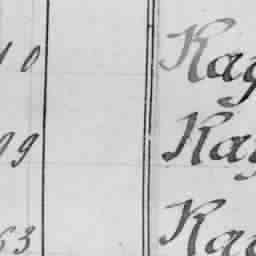 10 Kag
99 Kag
63 Kag